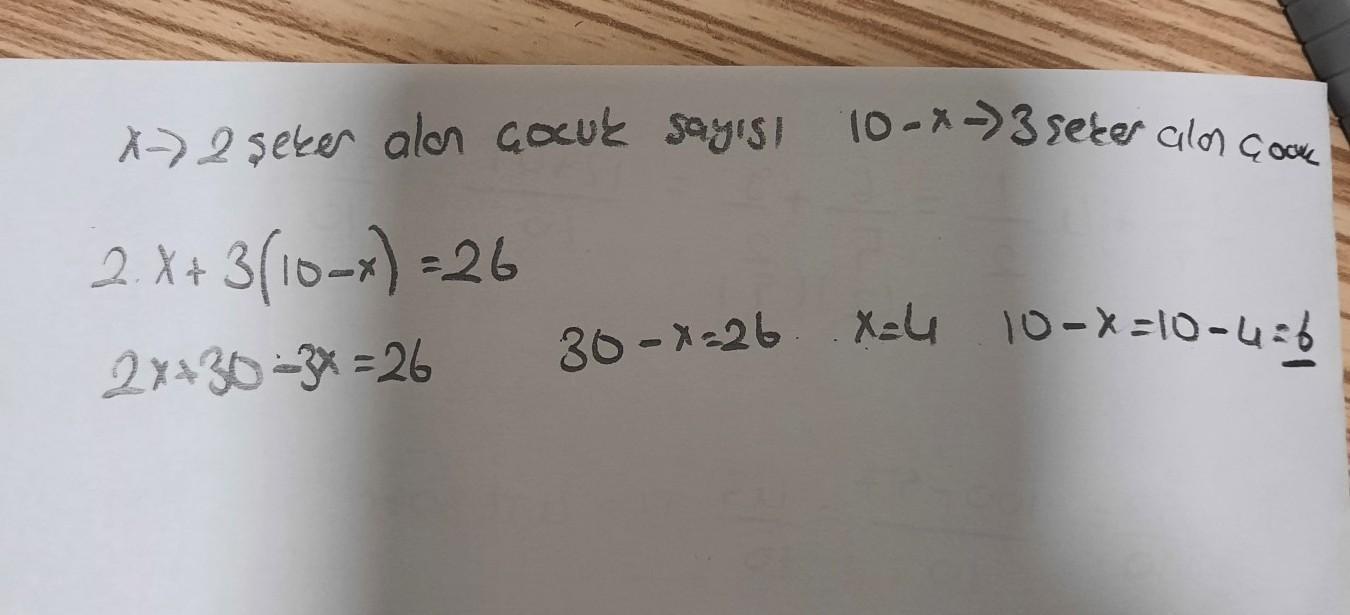 x→ 2 şeker alan çocuk sayısı 10-x→3 şeker alan çocuk
2.x+3(10-x)=26
2x+30-3x=26 30-x=26 x=4 10-x=10-4=6